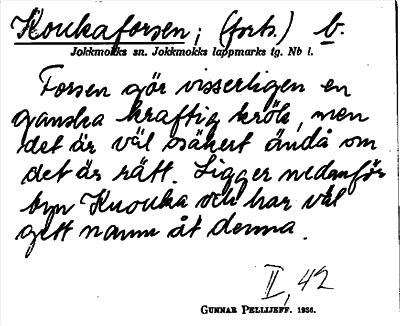 Koukaforsen; (forts.) b.
Jokkmokks sn. Jokkmokks lappmarks tg. Nb l.
Forsen gör visserligen en
ganska kraftig krök, men
det är väl säkert ändå om
det är rätt. Ligger nedanför
byn Knouka och har väl
gett namn åt denna.
II, 42
GUNNAR PELLIJEFF. 1936.